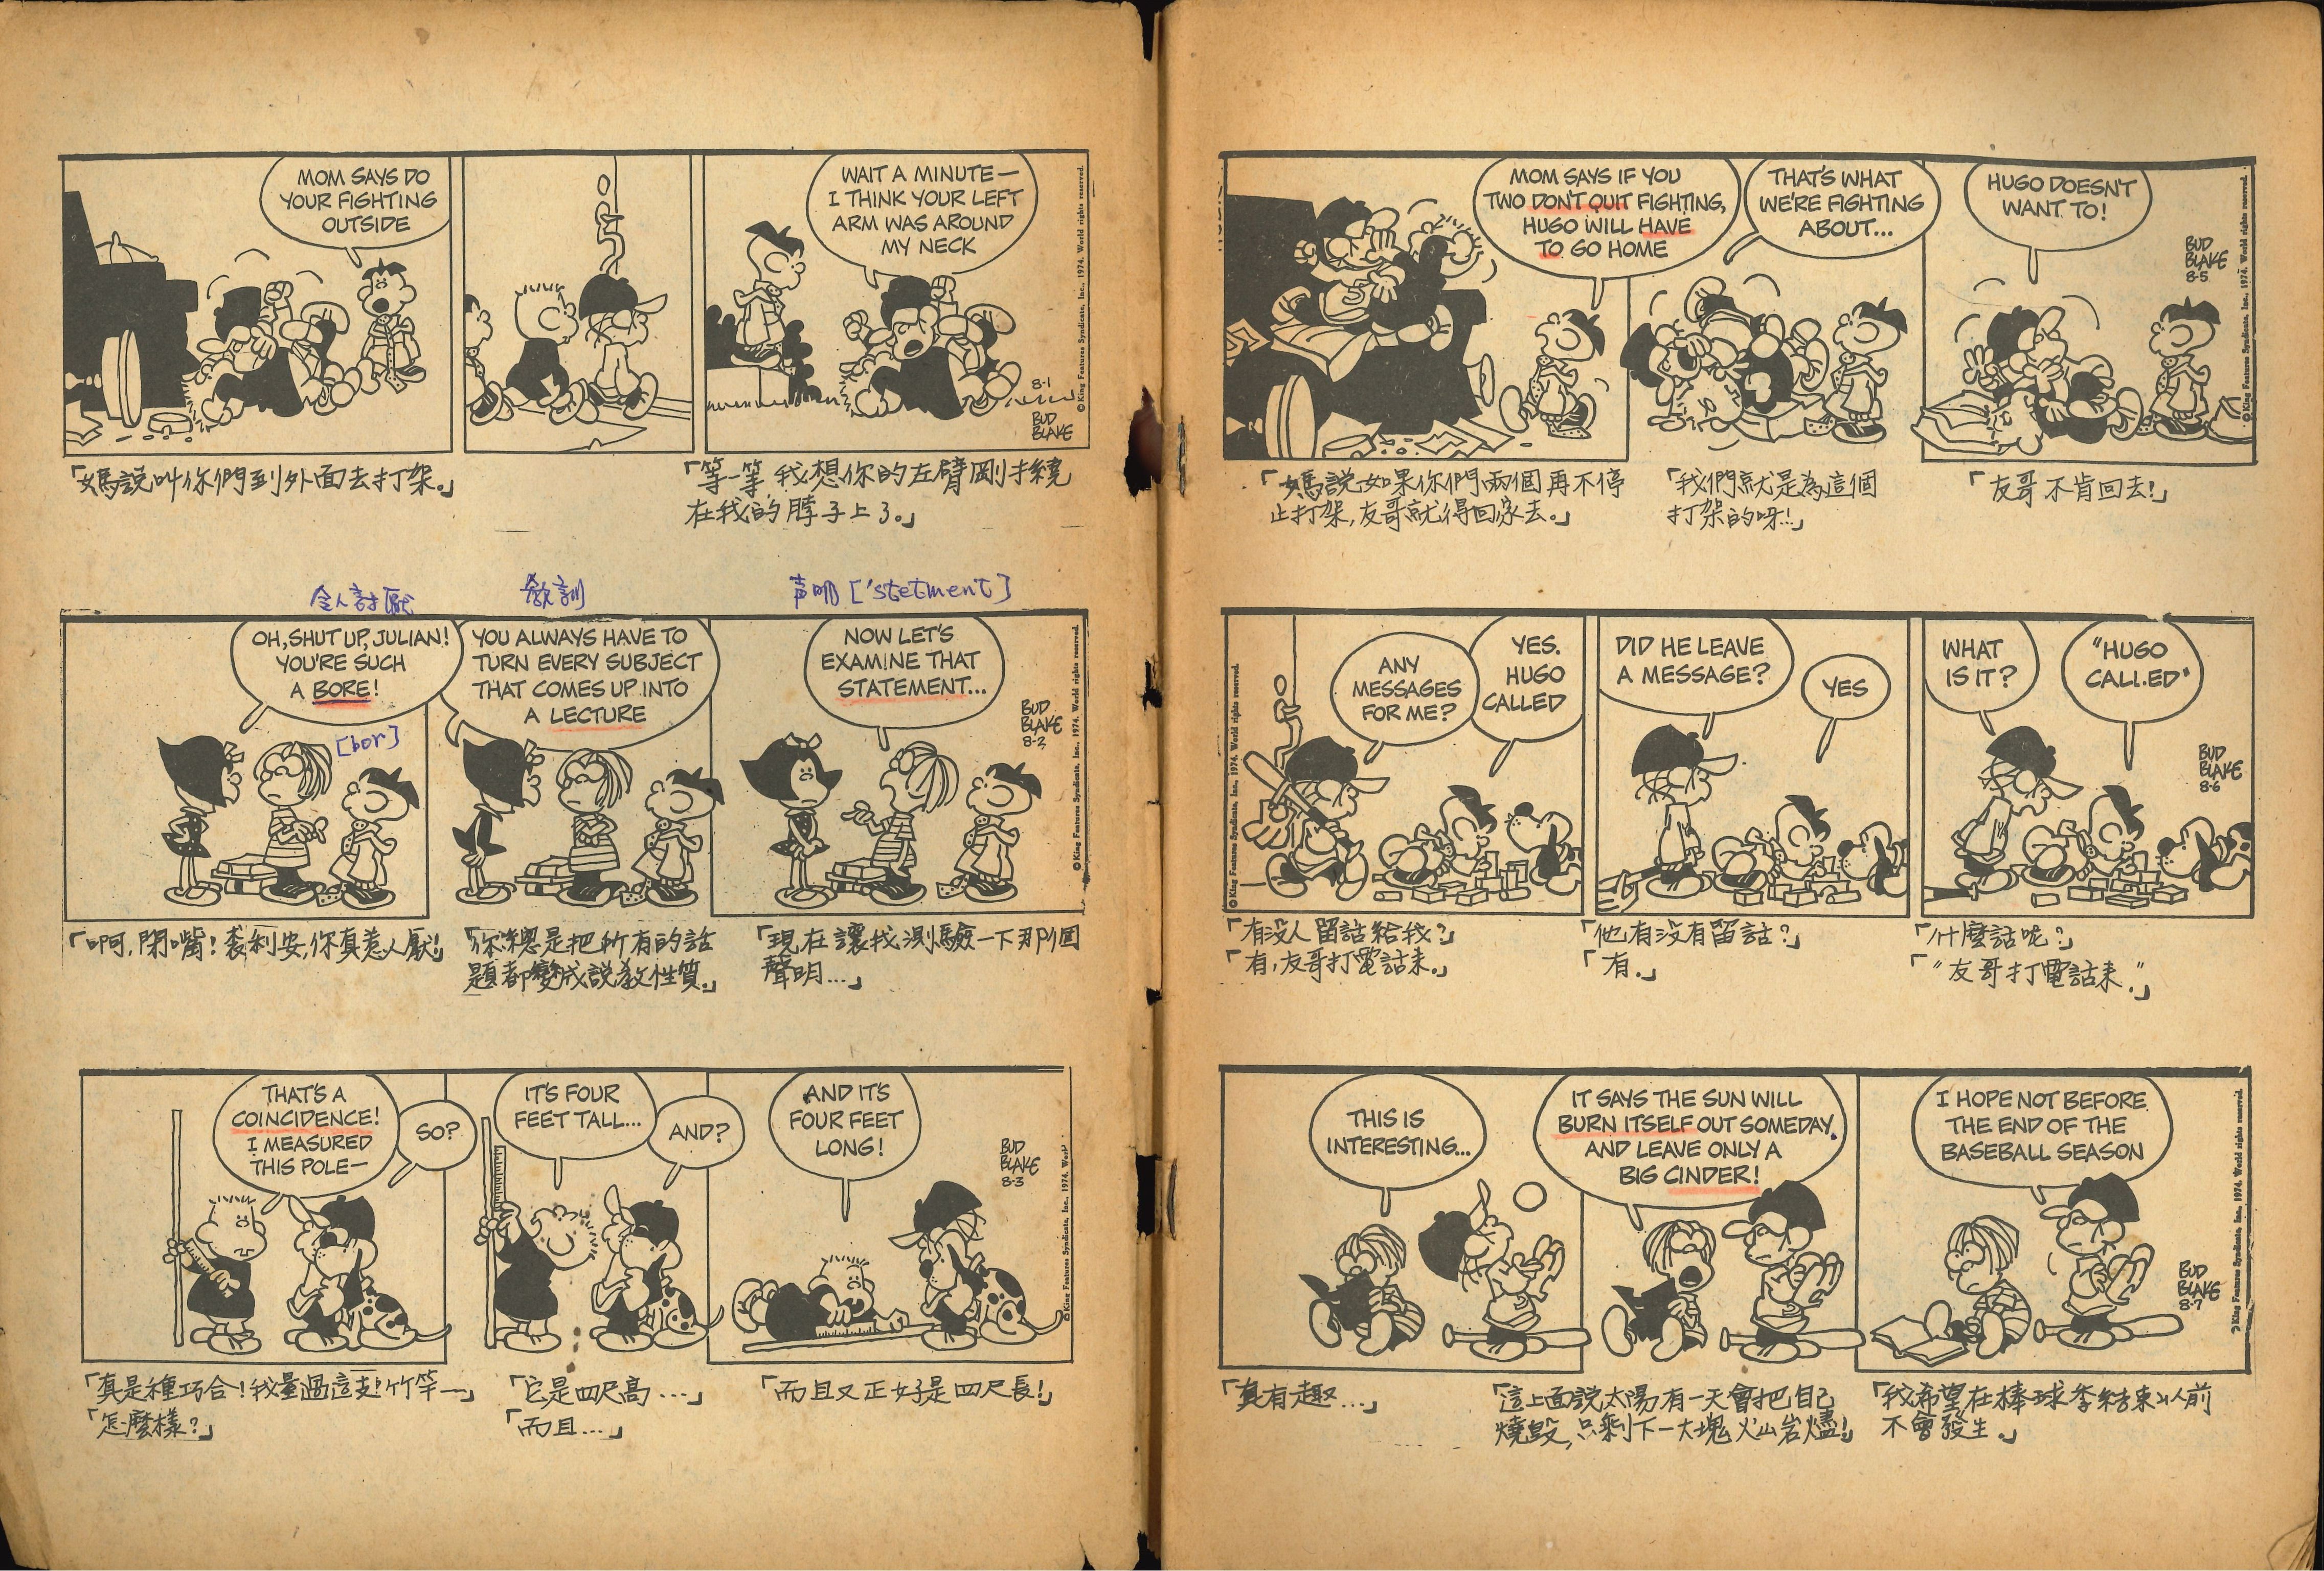 MOM SAYS DO
YOUR FIGHTING
OUTSIDE
WAIT A MINUTE—
I THINK YOUR LEFT
ARM WAS AROUND
MY NECK
8-1
BUD
BLAKE
© King Features Syndicate, Inc., 1974. World rights reserved.
「媽說叫你們到外面去打架。」
「等一等 我想你的左臂剛才繞
在我的脖子上了。」
令人討厭
教訓
声明 ['stetment]
OH, SHUT UP, JULIAN!
YOU'RE SUCH
A BORE!
[bor]
YOU ALWAYS HAVE TO
TURN EVERY SUBJECT
THAT COMES UP INTO
A LECTURE
NOW LET'S
EXAMINE THAT
STATEMENT...
BUD
BLAKE
8-2
© King Features Syndicate, Inc., 1974. World rights reserved.
「啊,閉嘴!裘利安,你真惹人厭!」
「你總是把所有的話
題都變成說教性質。」
「現在讓我測驗一下那個
聲明...」
THAT'S A
COINCIDENCE!
I MEASURED
THIS POLE—
SO?
IT'S FOUR
FEET TALL...
AND?
AND IT'S
FOUR FEET
LONG!
BUD
BLAKE
8-3
© King Features Syndicate, Inc., 1974. World
「真是種巧合!我量過這支竹竿—」
「怎麼樣?」
「它是四尺高....」
「而且...」
「而且又正好是四尺長!」
MOM SAYS IF YOU
TWO DON'T QUIT FIGHTING,
HUGO WILL HAVE
TO GO HOME
THAT'S WHAT
WE'RE FIGHTING
ABOUT...
HUGO DOESN'T
WANT TO!
BUD
BLAKE
8-5
© King Features Syndicate, Inc., 1974. World rights reserved.
「媽說如果你們兩個再不停
止打架,友哥就得回家去。」
「我們就是為這個
打架的呀!」
「友哥不肯回去!」
© King Features Syndicate, Inc., 1974. World rights reserved.
ANY
MESSAGES
FOR ME?
YES.
HUGO
CALLED
DID HE LEAVE
A MESSAGE?
YES
WHAT
IS IT?
"HUGO
CALLED"
BUD
BLAKE
8-6
「有没人留話給我?」
「有,友哥打電話來。」
「他有沒有留話?」
「有.」
「什麼話呢?」
「"友哥打電話來."」
THIS IS
INTERESTING...
IT SAYS THE SUN WILL
BURN ITSELF OUT SOMEDAY,
AND LEAVE ONLY A
BIG CINDER!
I HOPE NOT BEFORE
THE END OF THE
BASEBALL SEASON
BUD
BLAKE
8-7
King Features Syndicate, Inc., 1974. World rights reserved.
「真有趣...」
「這上面說太陽有一天會把自己
燒毀,只剩下一大塊火山岩燼!」
「我希望在棒球季結束以前
不會發生。」